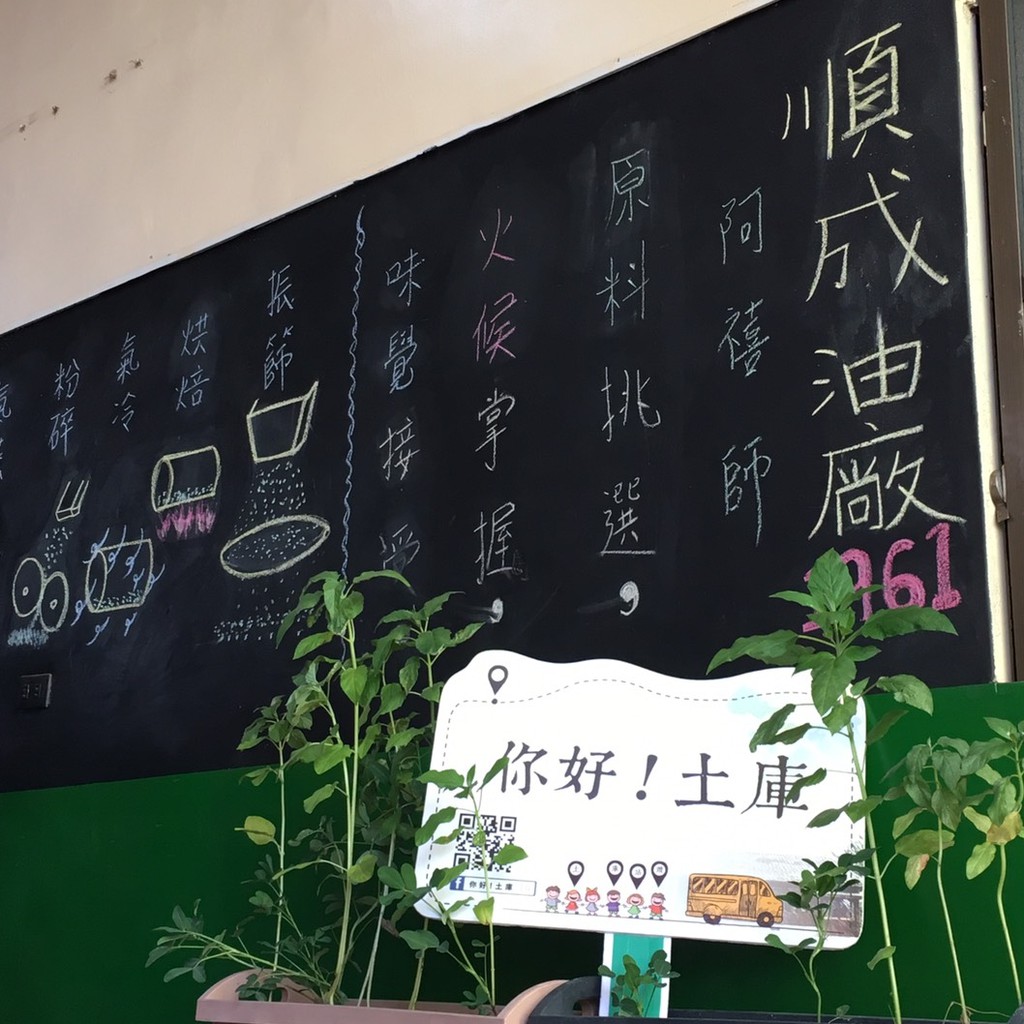 順成油廠
1961
阿禧師
原料挑選,
火候掌握,
味覺接受
振篩
烘焙
氣冷
粉碎
你好!土庫
你好!土庫